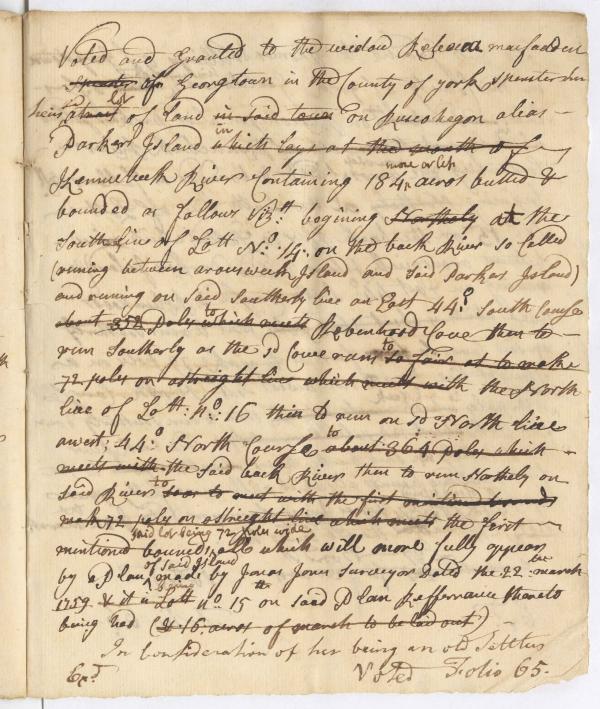 Voted and Granted to the widow Rebecca macfadden
Spinster of Georgtown in the County of york Spinster her
heirs a tract Lot of Land in said town on Ruscohegon alias
Parkers Island in which lays at the mouth of
Kennebeck River Containing 184 more or less acres butted &
bounded as follows Viz.tt begining Northerly at the
South Line of Lott No. 14. on the back River so Called
(runing between arowsweek Island and said Parkers Island)
and runing on said Southerly line an East 44.o South Course
about 352 poles to which meets Robinhoods Cove then to
run Southerly as the sd Cove runs to so far as to make
72 poles on a streight line which meet with the North
line of Lott: no: 16 then to run on sd North line
a west: 44.o North Course to about 364 poles which
meets with the said back River then to run Northely on
said River to soas to meet with the first mentiond bounds
make 72 poles on a streight line which meets the first
mentioned bounds, said Lot being 72 poles wide all which will more fully appear
by a Plan of said Island made by Jonas Jones Surveyor Dated the 22 march
1759 & it is being Lott no. 15 th on said Plan Refferrance thereto
being had (& 16. acres of marsh to be laid out)
In Consideration of her being an old Settler
Voted Folio 65.